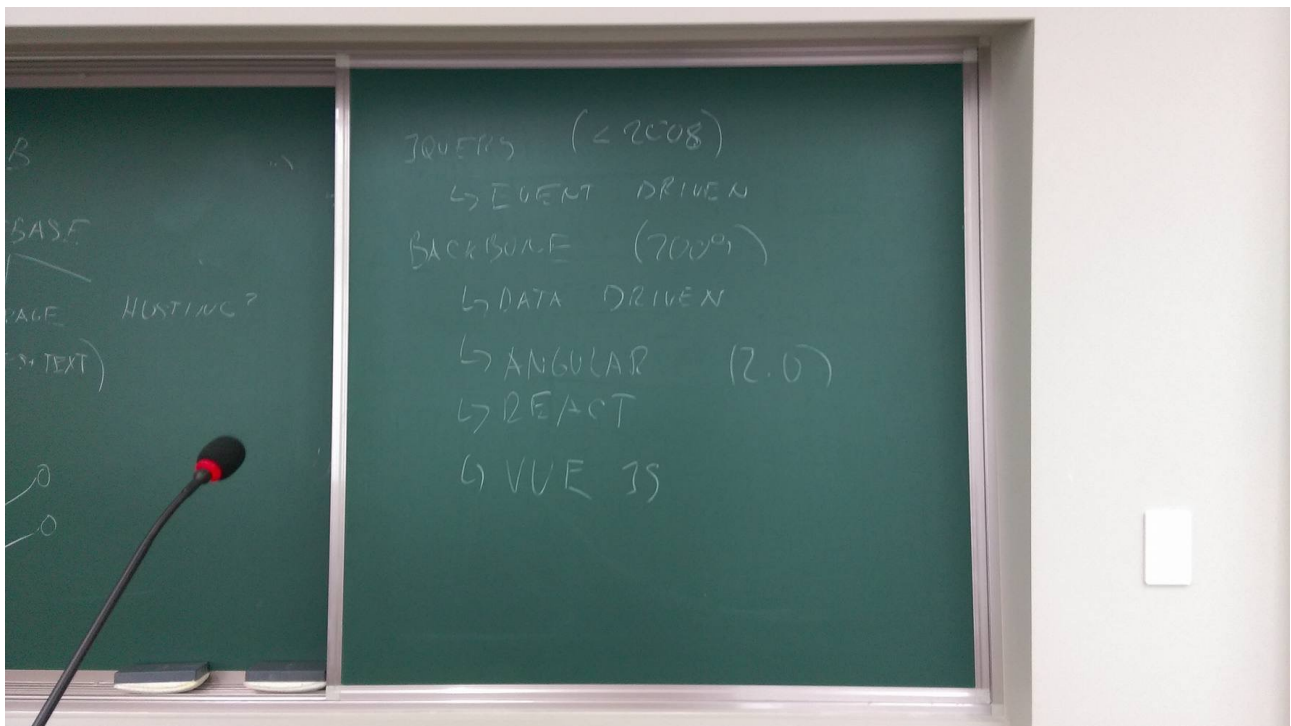 B
BASE
AGE HOSTING?
TEXT)
JQUERY (< 2008)
↳ EVENT DRIVEN
BACKBONE (2009)
↳ DATA DRIVEN
↳ ANGULAR (2.0)
↳ REACT
↳ VUE JS